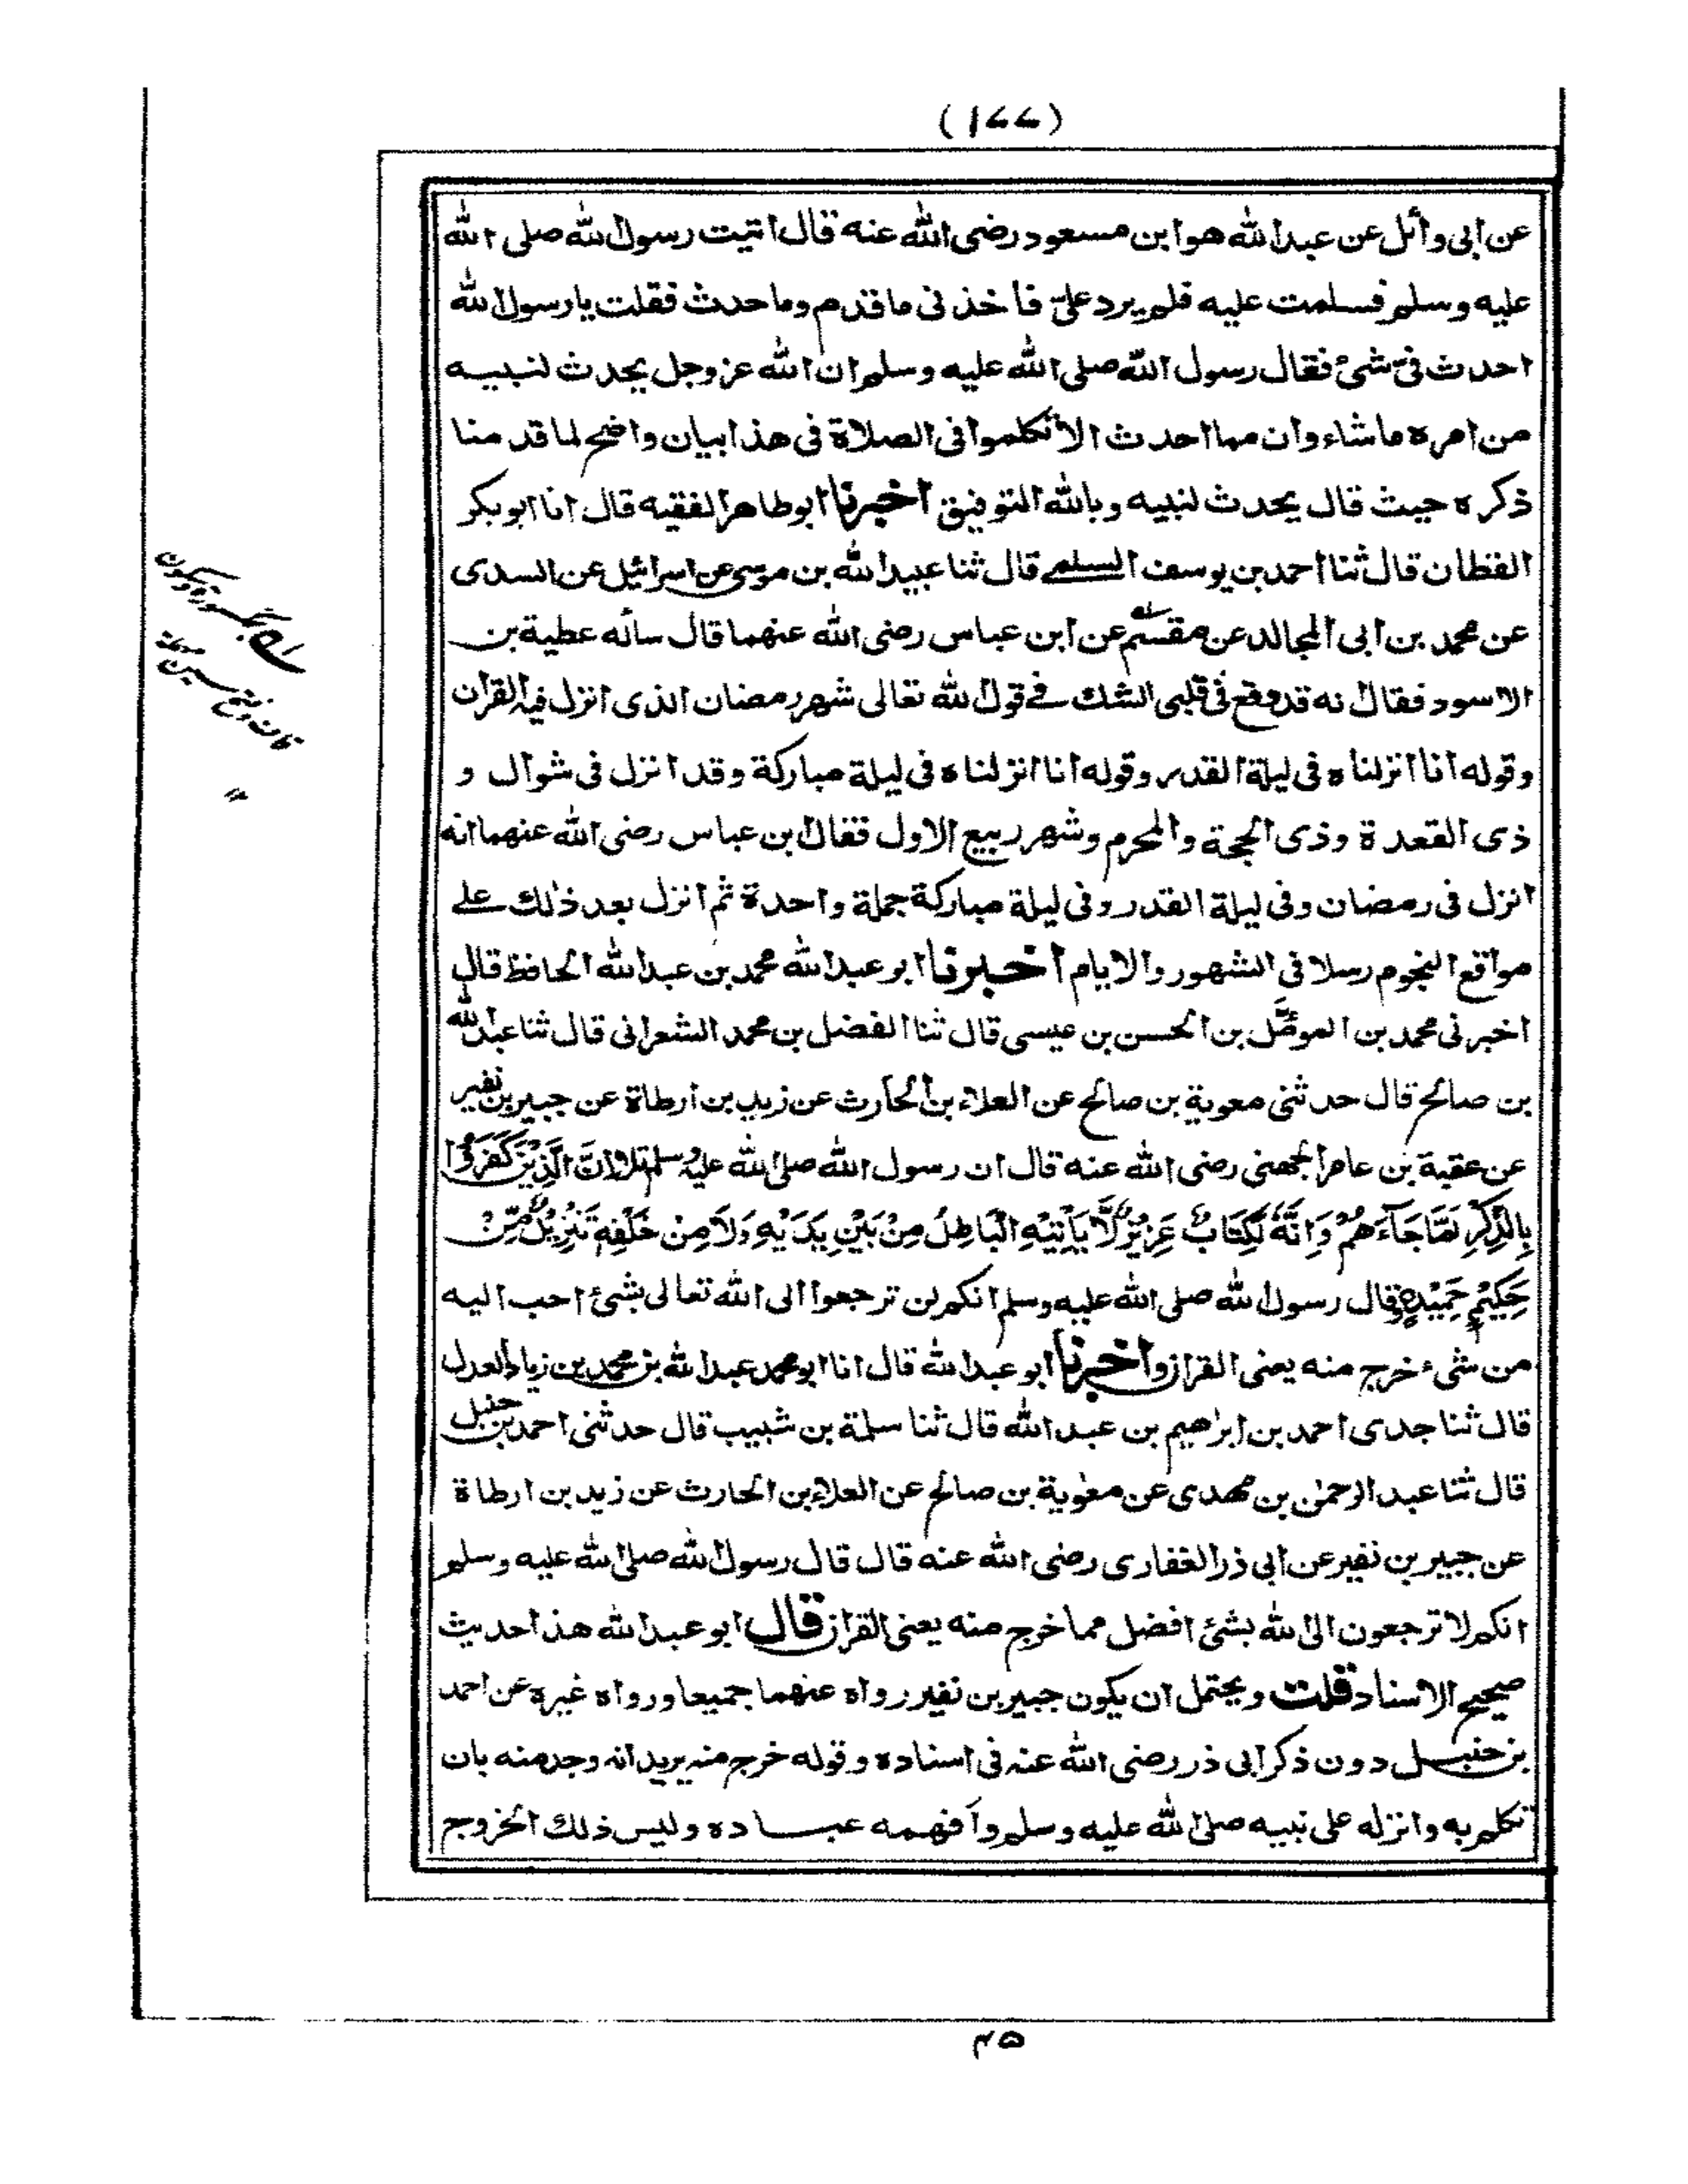 (١٧٧)
عن ابی وائل عن عبدالله هو ابن مسعود رضی الله عنه قال اتیت رسول الله صلی الله
علیه وسلم فسلمت علیه فلم یرد علیّ فاخذ نی ما قدم وما حدث فقلت یا رسول الله
احدث فیّ شئ فقال رسول الله صلی الله علیه وسلم ان الله عز وجل یحدث لنبیه
من امره ماشاء وان مما احدث الا تکلموا فی الصلاة فی هذا بیان واضح لما قد منا
ذکره حیث قال یحدث لنبیه وبالله التوفیق اخبرنا ابو طاهر الفقیه قال انا ابو بکر
القطان قال ثنا احمد بن یوسف السلمی قال ثنا عبید الله بن موسی عن اسرائیل عن السدی
عن محمد بن ابی المجالد عن مقسم عن ابن عباس رضی الله عنهما قال سأله عطیة بن
الاسود فقال انه قد وقع فی قلبی الشك فے قول الله تعالی شهر رمضان الذی انزل فیه القران
وقوله انا انزلناه فی لیلة القدر وقوله انا انزلناه فی لیلة مبارکة وقد انزل فی شوال و
ذی القعدة وذی الحجة والمحرم وشهر ربیع الاول فقال ابن عباس رضی الله عنهما انه
انزل فی رمضان وفی لیلة القدر وفی لیلة مبارکة جملة واحدة ثم انزل بعد ذلك علے
مواقع النجوم رسلا فی الشهور والایام اخبرنا ابو عبدالله محمد بن عبدالله الحافظ قال
اخبرنی محمد بن الموصَّل بن الحسن بن عیسی قال ثنا الفضل بن محمد الشعرانی قال ثنا عبدالله
بن صالح قال حدثنی معویة بن صالح عن العلاء بن الحارث عن زید بن ارطاة عن جبیر بن نفیر
عن عقبة بن عامر الجهنی رضی الله عنه قال ان رسول الله صلی الله علیه وسلم تلا اِنَّ الَّذِیْنَ کَفَرُوْا
بِالذِّکْرِ لَمَّا جَآءَهُمْ وَاِنَّهٗ لَکِتَابٌ عَزِیْزٌ لَّا یَأْتِیْهِ الْبَاطِلُ مِنْ بَیْنِ یَدَیْهِ وَلَا مِنْ خَلْفِهٖ تَنْزِیْلٌ مِّنْ
حَکِیْمٍ حَمِیْدٍ فقال رسول الله صلی الله علیه وسلم انکم لن ترجعوا الی الله تعالی بشئ احب الیه
من شیء خرج منه یعنی القران واخبرنا ابو عبدالله قال انا ابو محمد عبدالله بن محمد بن زیاد العدل
قال ثنا جدی احمد بن ابراهیم بن عبدالله قال ثنا سلمة بن شبیب قال حدثنی احمد بن حنبل
قال ثنا عبد الرحمٰن بن مهدی عن معٰویة بن صالح عن العلاء بن الحارث عن زید بن ارطاة
عن جبیر بن نفیر عن ابی ذر الغفاری رضی الله عنه قال قال رسول الله صلی الله علیه وسلم
انکم لا ترجعون الی الله بشئ افضل مما خرج منه یعنی القران قال ابو عبدالله هذا حدیث
صحیح الاسناد قلت ویحتمل ان یکون جبیر بن نفیر رواه عنهما جمیعا ورواه غیره عن احمد
بن حنبل دون ذکر ابی ذر رضی الله عنه فی اسناده وقوله خرج منه یرید انه وجد منه بان
تکلم به وانزله علی نبیه صلی الله علیه وسلم وأفهمه عباده ولیس ذلك الخروج
۴۵